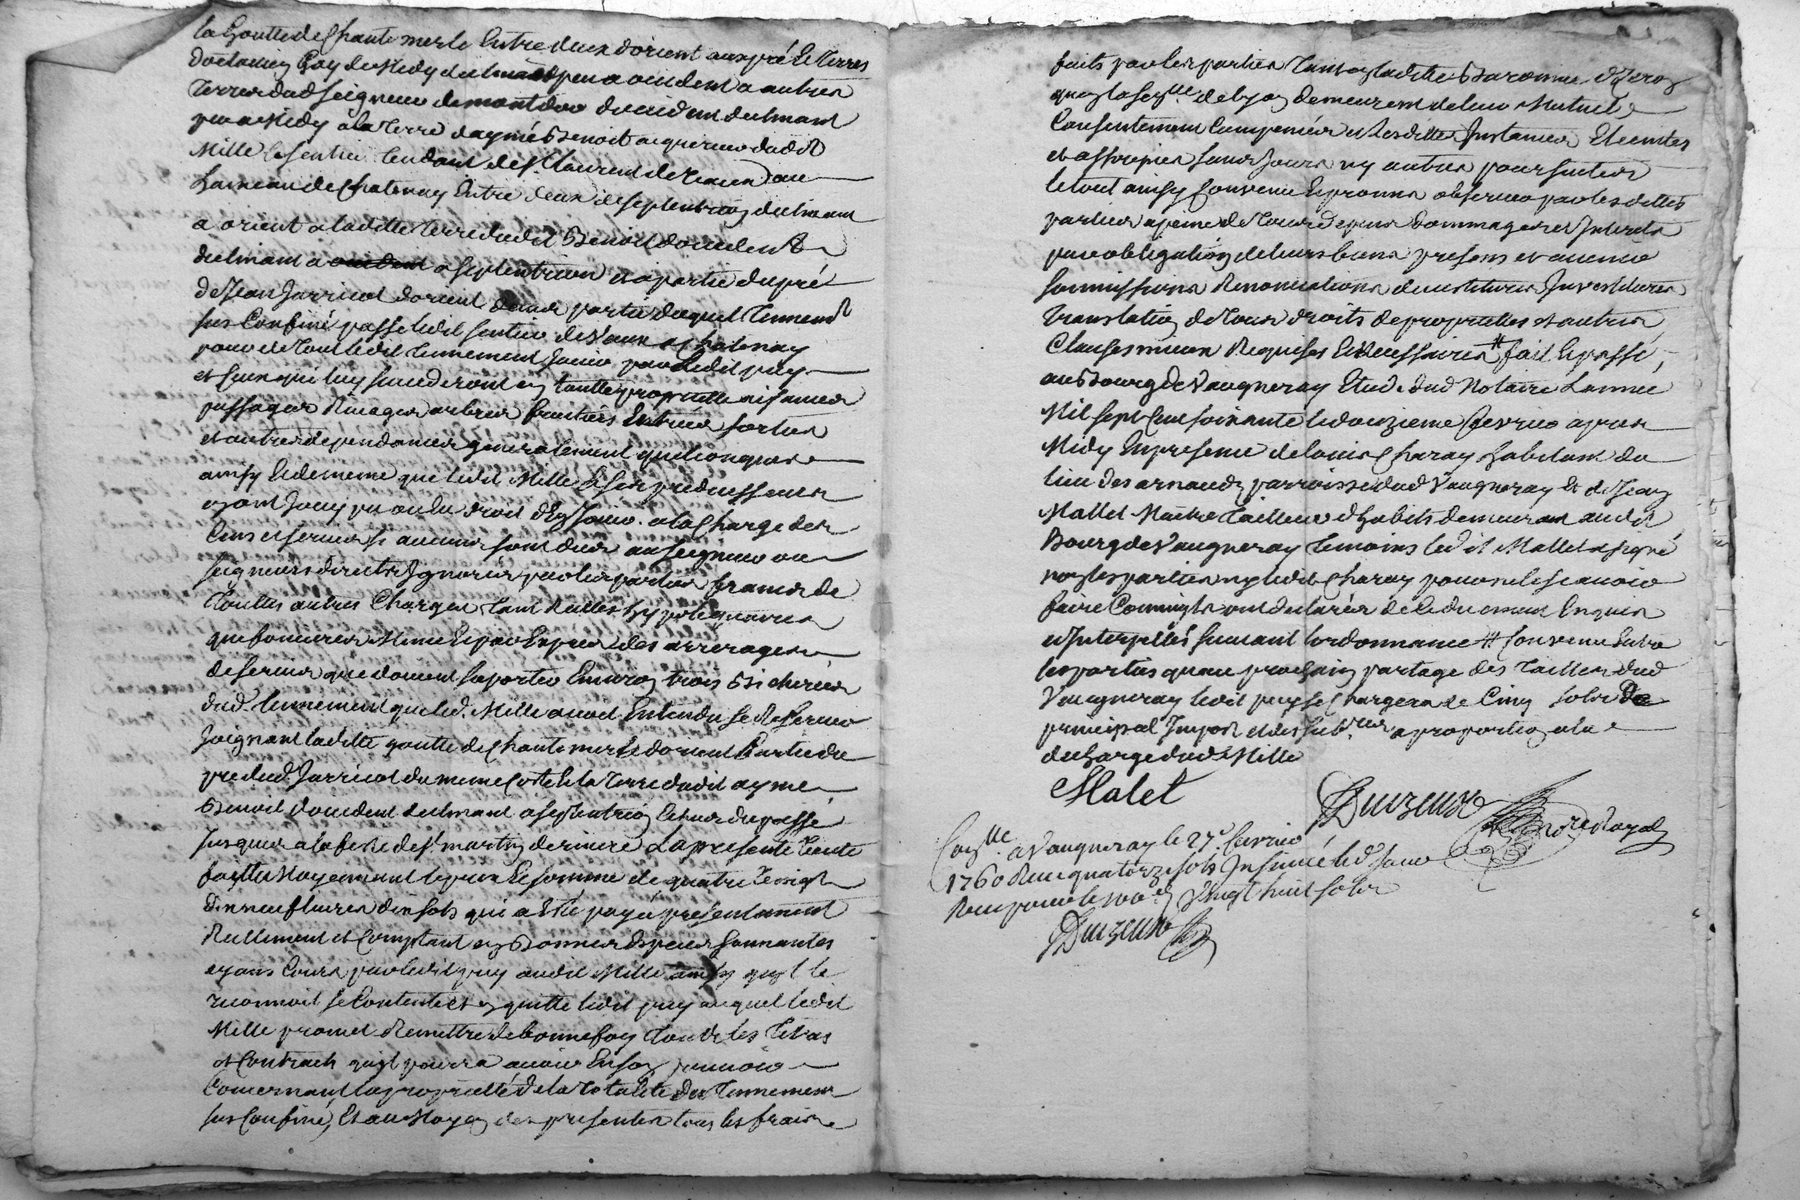 la Goutte de Chante merle Entre deux d'orient aux pré Et Terres
terres dud Seigneur de montdor
pura Midy a la Terre d'aymé Benoit acquereur dudit
Mille le sentier tendant de St Laurent de Vaux au
hameau de Chatenay Entre deux de septentrion declinant
a orient a laditte Terre dudit Benoit d'occident
declinant a septentrion et a partie du pré
de Jean Jarricot d'orient de
sus Confiné passe ledit sentier de Vaux a Chatenay
pour de Tout ledit Tennement Jouir par ledit puy
et ceux qui luy succederont en toutte proprietté aisances
passages Rivages arbres fruitiers Entrées sorties
et autres dependances generalement quelconques
ainsy Et de meme que ledit Mille Et ses predecesseurs
ayant Jouy pu ou du droit d'En Jouir a la Charge des
Cens et servis si aucuns sont dus au seigneur ou
seigneurs directs Ignorés par les parties francs de
Touttes autres Charges tant Reelles hypotequaires
que foncieres Meme Et par Exprès des arrerages
de servis que doivent suporter Environ trois Bicherées
dud. Tennement que led. Mille avoit Entendu se Reserver
Joignant laditte goutte de Chante merle d'orient Partie du
pre dud. Jarricot du meme Coté Et la Terre dudit aymé
Benoit d'occident declinant a septentrion
Jusques a la feste de St martin derniere La presente Vente
faitte Moyennant le prix Et somme de quatre Vingt
Dix neuf livres dix sols qui a Eté payée presentement
Reellement et Comptant en Bonnes Especes sonnantes
ayant Cours par ledit puy audit Mille ainsy qu'il le
reconnoit se Contente Et en quitte ledit puy auquel ledit
Mille promet Remettre de bonne foy Tous les Titres
et Contracts qu'il pourra avoir En son pouvoir
Concernant la proprietté de la Totalité du Tennement
sus Confiné, Et au Moyen des presentes tous les frais
faits par les parties Tant en laditte Baronnie d'Yzeron
qu'en la sen.lle de Lyon demeurent de leur Mutuel
Consentement Compensés et Lesdittes Instances Eteintes
et assopies sans Jours ny autres poursuittes
le tout ainsy Convenu Et promis observer par lesdittes
parties a peine de Tous depens Dommages et Interets
par obligation de leurs biens presens et avenir
soumissions Renonciations devestitures Investitures
Translation de Tous droits de proprietté et autres
Clauses mieux Requises Et Necessaires # fait Et passé
au Bourg de Vaugneray Etude dud Notaire L'annee
Mil sept Cent soixante le douzieme fevrier apres
Midy En presence de Louis Charay habitant du
lieu des arnauds parroisse dud Vaugneray Et de Jean
Mallet Maitre Tailleur d'habits demeurant audit
Bourg de Vaugneray Temoins ledit Mallet a signé
non les parties ny ledit Charay pour ne le scavoir
faire Comm'ils ont declarés de ce duement Enquis
et Interpellés suivant l'ordonnance # Convenu Entre
les parties qu'au prochain partage des Tailles dud
Vaugneray ledit puy se Chargera de Cinq sols de
principal Impot et des sub.res a proportion a la
decharge dud. Mille
Malet
Duizeuse
Nore Royal
Con.lle a Vaugneray le 27e fevrier
1760 Reçu quatorze sols
Vingt huit sols
Duizeuse